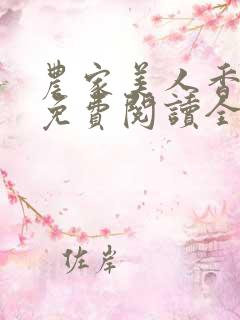 農家美人香
免費閱讀全
佐岸